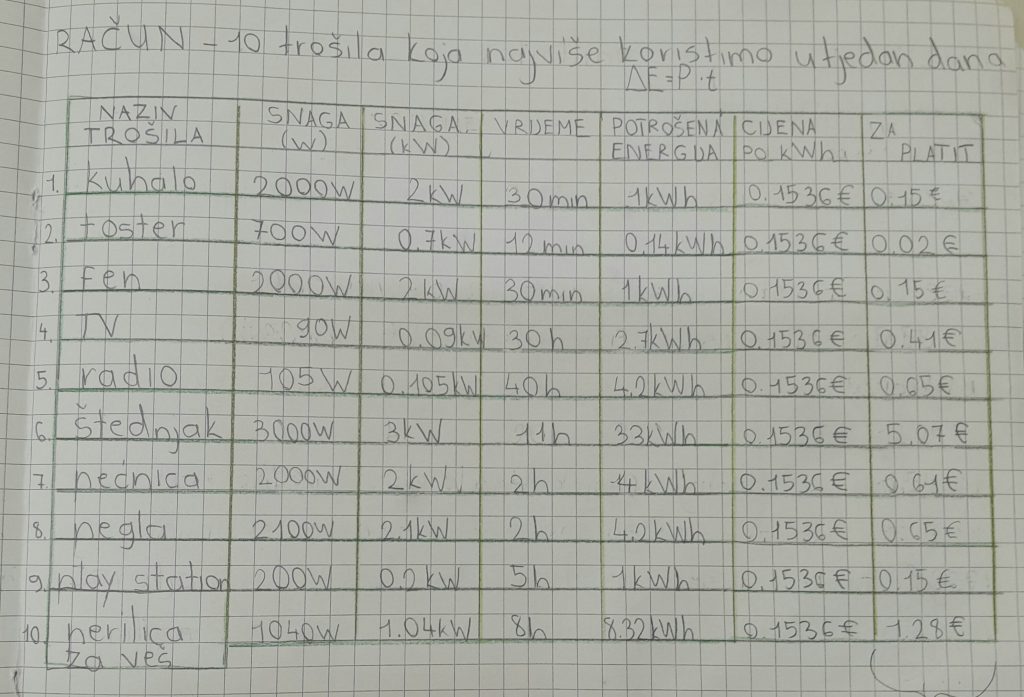 RAČUN - 10 trošila koja najviše koristimo u tjedan dana
ΔE=P·t
NAZIV TROŠILA SNAGA (W) SNAGA (kW) VRIJEME POTROŠENA ENERGIJA CIJENA PO kWh ZA PLATIT
1. kuhalo 2000W 2kW 30min 1kWh 0.1536€ 0.15€
2. toster 700W 0.7kW 12min 0.14kWh 0.1536€ 0.02€
3. fen 2000W 2kW 30min 1kWh 0.1536€ 0.15€
4. TV 90W 0.09kW 30h 2.7kWh 0.1536€ 0.41€
5. radio 105W 0.105kW 40h 4.2kWh 0.1536€ 0.65€
6. štednjak 3000W 3kW 11h 33kWh 0.1536€ 5.07€
7. pećnica 2000W 2kW 2h 4kWh 0.1536€ 0.61€
8. pegla 2100W 2.1kW 2h 4.2kWh 0.1536€ 0.65€
9. play station 200W 0.2kW 5h 1kWh 0.1536€ 0.15€
10. perilica za veš 1040W 1.04kW 8h 8.32kWh 0.1536€ 1.28€